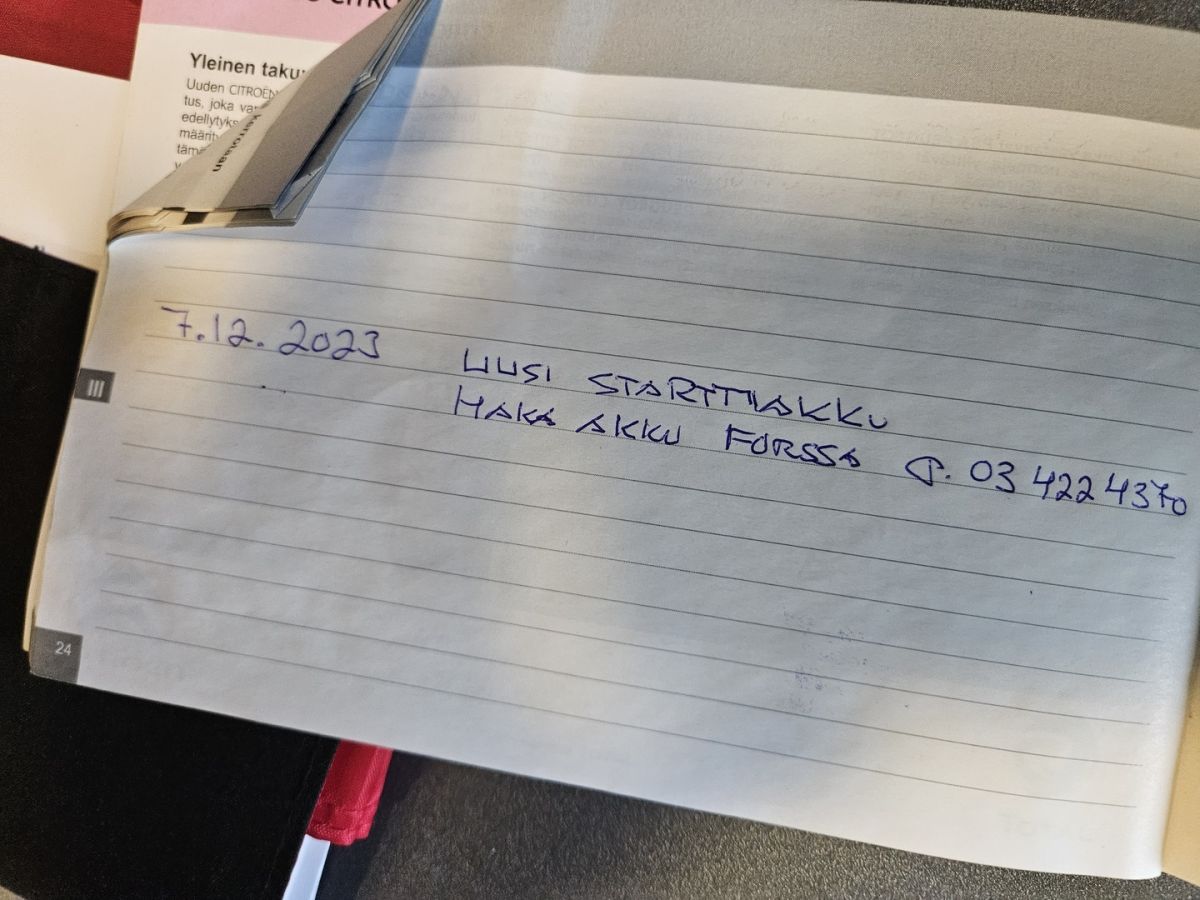 Yleinen takuu
Uuden CITROËN
tus, joka
edellytyks
määrity
tämä
kerrotaan
7.12.2023 UUSI STARTTIAKKU
HAKA AKKU FORSSA P. 03 422 4370
III
24